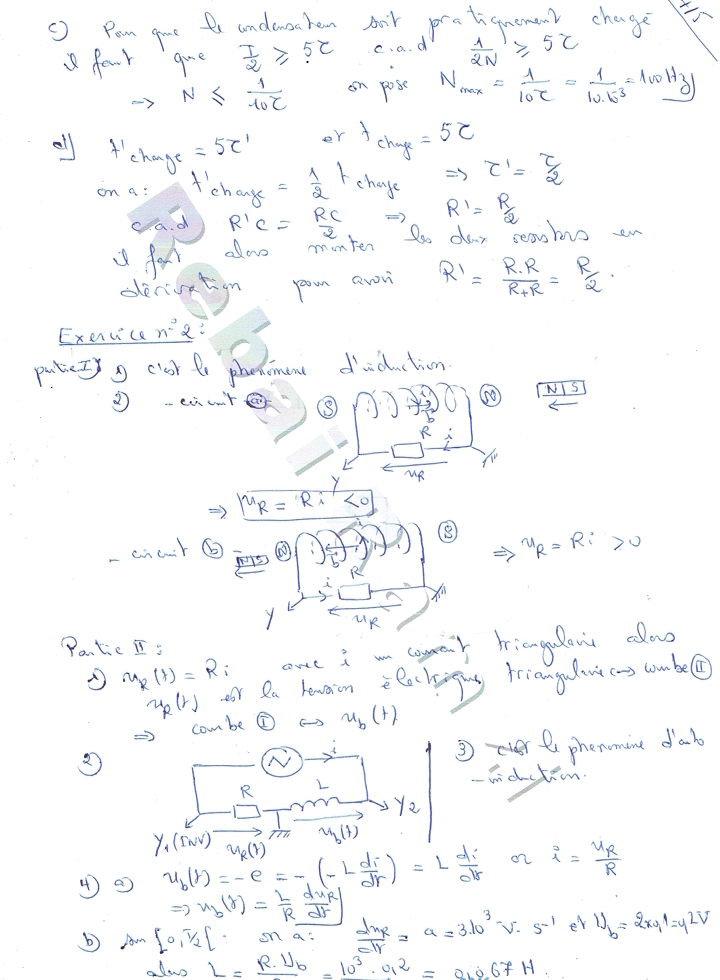 4/5
c) Pour que le condensateur soit pratiquement chargé
il faut que T/2 ⩾ 5τ c.a.d 1/2N ⩾ 5τ
=> N ⩽ 1/10τ on pose Nmax = 1/10τ = 1/10.10⁻³ = 100 Hz
d) t'charge = 5τ' et tcharge = 5τ
on a : t'charge = 1/2 tcharge => τ' = τ/2
c.a.d R'C = RC/2 => R' = R/2
il faut alors monter les deux resistors en
dérivation pour avoir R' = R.R/R+R = R/2.
Exercice n°2 :
partie I) 1) c'est le phénomène d'induction.
2) - circuit ⓐ Ⓢ Ⓝ N S
i b R i
Y uR
=> uR = Ri <0
- circuit ⓑ N S Ⓝ Ⓢ => uR = Ri >0
i b i R
Y uR
Partie II :
1) uR(t) = Ri avec i un courant triangulaire alors
uR(t) est la tension électrique triangulaire <=> courbe Ⓘⓘ
=> courbe Ⓘ <=> ub(t)
2) N i 3) c'est le phénomène d'auto
-induction.
R L Y2
Y1(INV) uR(t) ub(t)
4) a) ub(t) = -e = -(-L di/dt) = L di/dt or i = uR/R
=> ub(t) = L/R duR/dt
b) sur [0, T/2[ on a : duR/dt = a = 3.10³ V.s⁻¹ et Ub = 2x0,1 = 0,2V
alors L = R.Ub = 10³.0,2 = 0,067 H